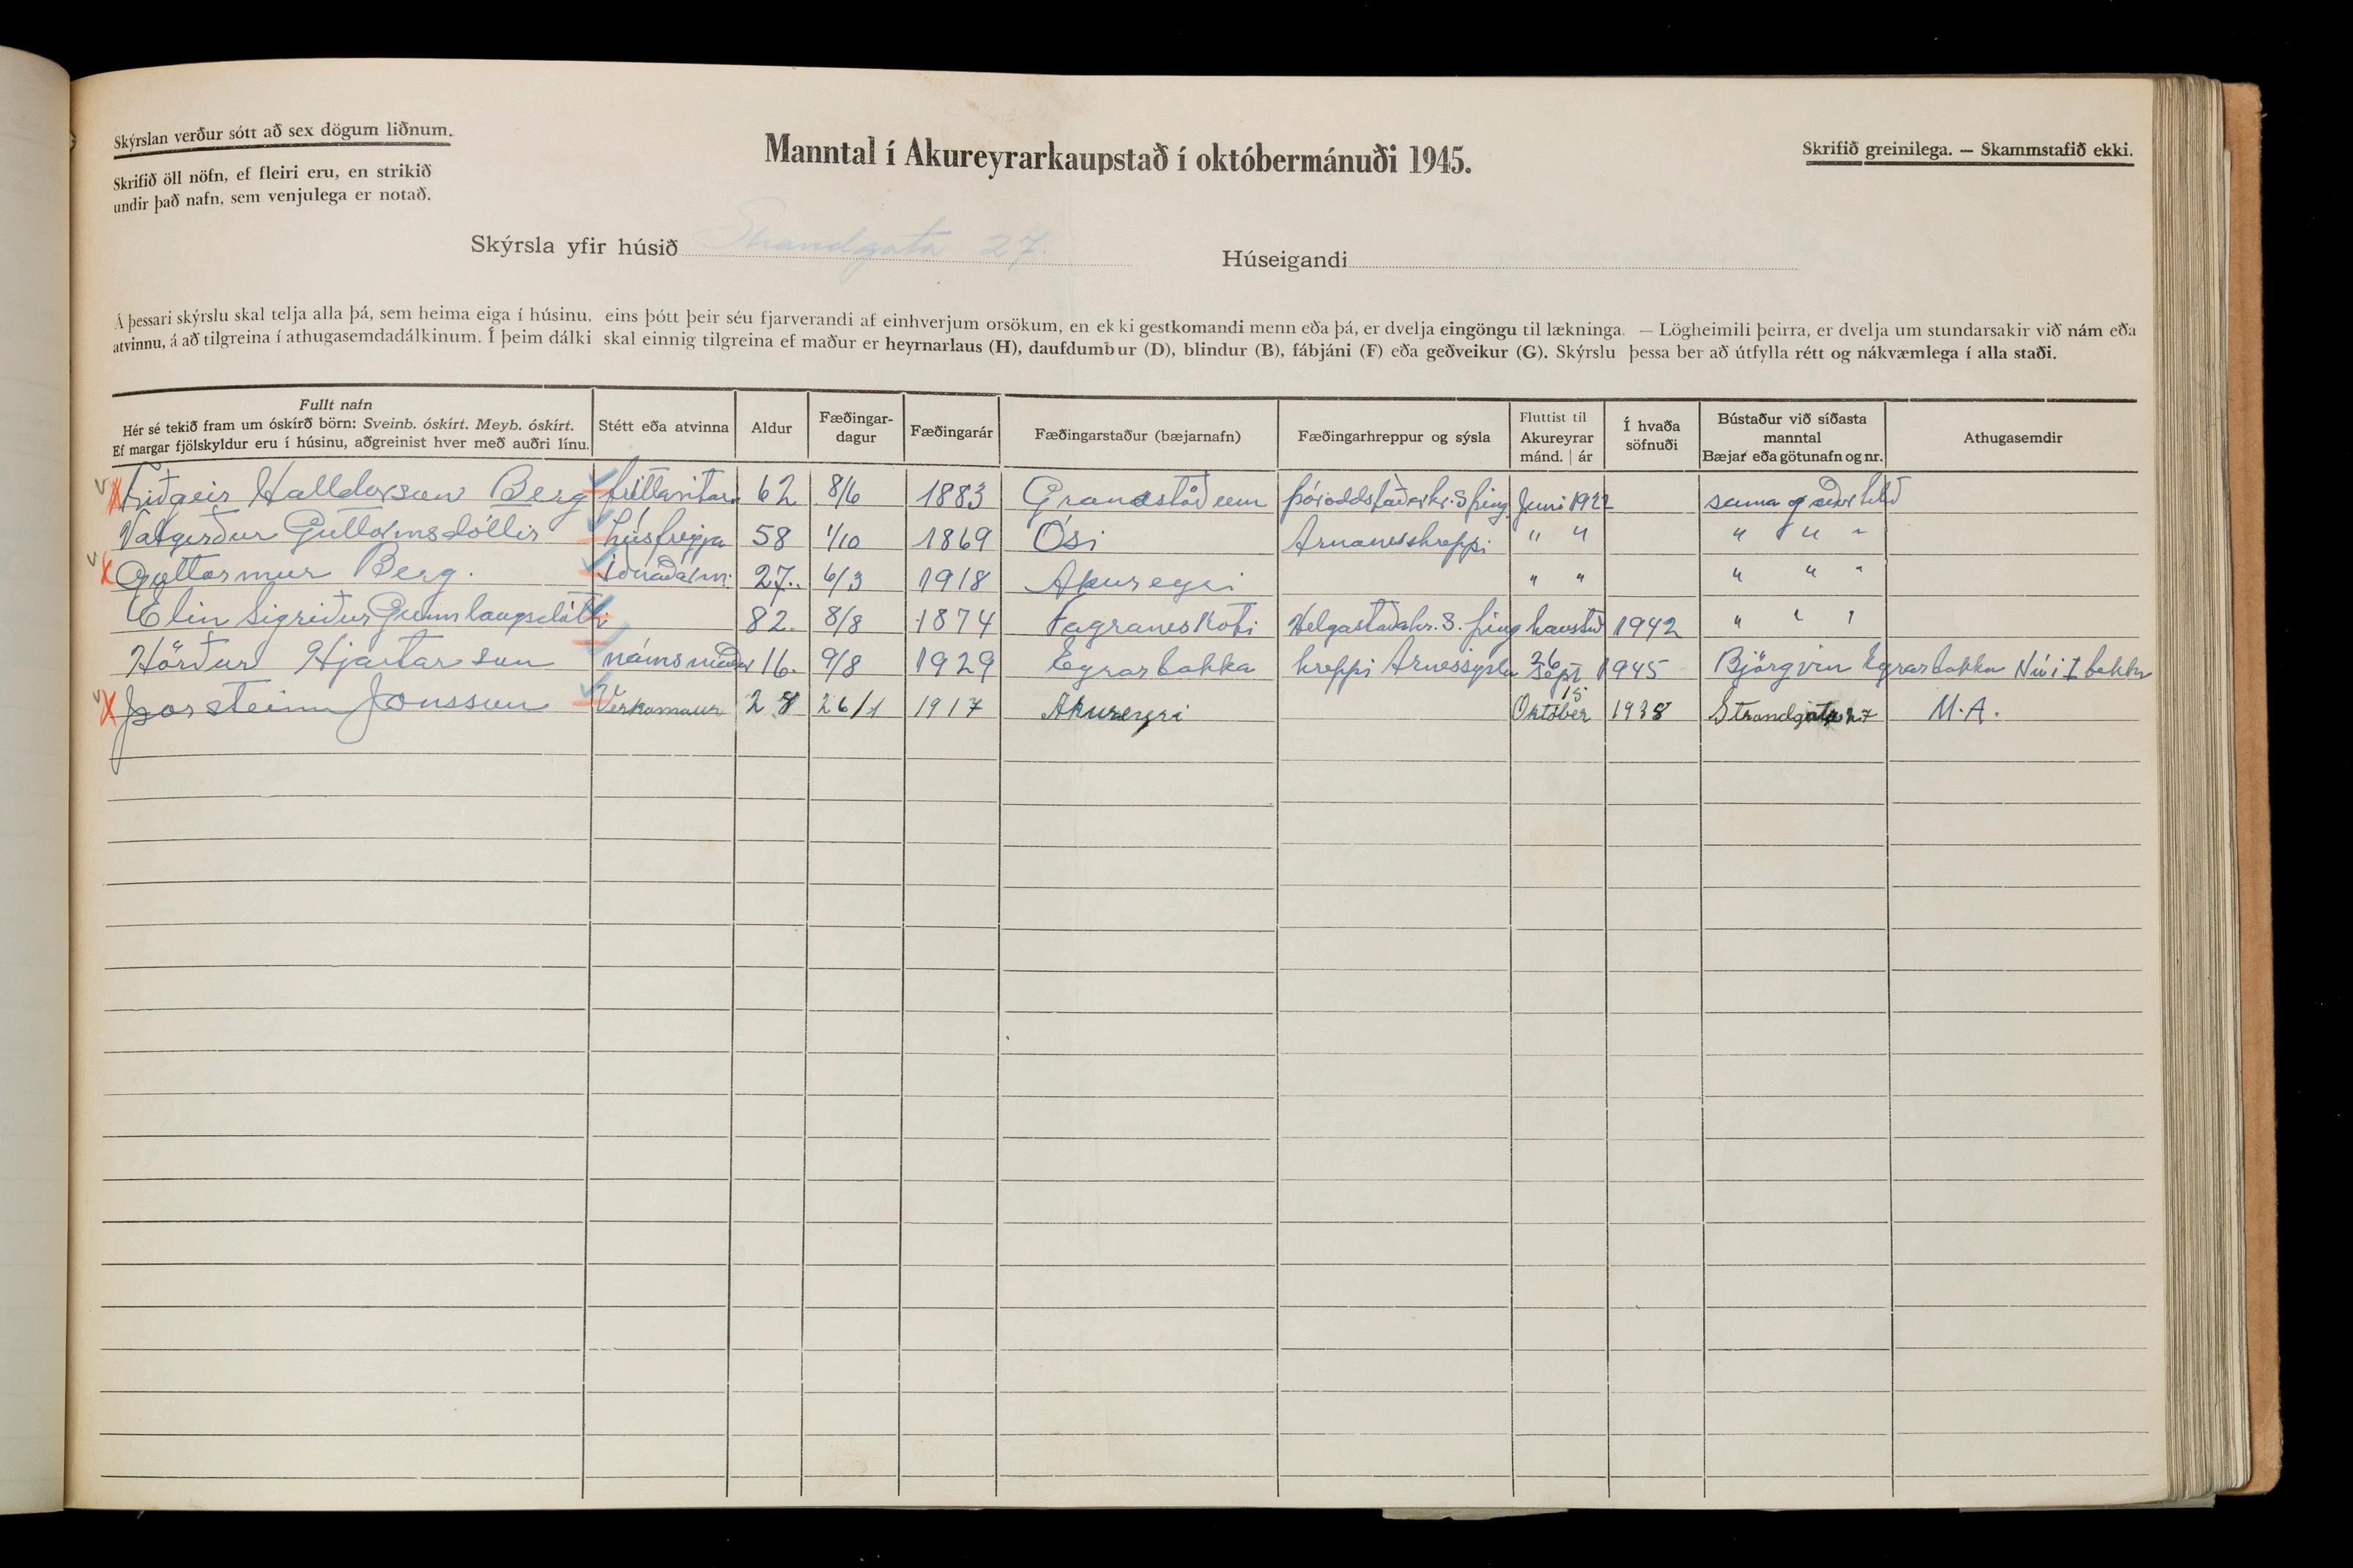 Skýrslan verður sótt að sex dögum liðnum.
Skrifið öll nöfn, ef fleiri eru, en strikið
undir það nafn, sem venjulega er notað.
Manntal í Akureyrarkaupstað í októbermánuði 1945.
Skrifið greinilega. — Skammstafið ekki.
Skýrsla yfir húsið Strandgata 27.
Húseigandi
Á þessari skýrslu skal telja alla þá, sem heima eiga í húsinu, eins þótt þeir séu fjarverandi af einhverjum orsökum, en ekki gestkomandi menn eða þá, er dvelja eingöngu til lækninga. — Lögheimili þeirra, er dvelja um stundarsakir við nám eða
atvinnu, á að tilgreina í athugasemdadálkinum. Í þeim dálki skal einnig tilgreina ef maður er heyrnarlaus (H), daufdumbur (D), blindur (B), fábjáni (F) eða geðveikur (G). Skýrslu þessa ber að útfylla rétt og nákvæmlega í alla staði.
Fullt nafn
Hér sé tekið fram um óskírð börn: Sveinb. óskírt. Meyb. óskírt.
Ef margar fjölskyldur eru í húsinu, aðgreinist hver með auðri línu.
Stétt eða atvinna
Aldur
Fæðingar-
dagur
Fæðingarár
Fæðingarstaður (bæjarnafn)
Fæðingarhreppur og sýsla
Fluttist til
Akureyrar
mánd. | ár
Í hvaða
söfnuði
Bústaður við síðasta
manntal
Bæjar eða götunafn og nr.
Athugasemdir
Friðgeir Halldorsson Berg 62 8/6 1883 þóroddstaðarhr. S þing Juni 1922 sama
Valgerður Guttormsdóttir húsfreyja 58 1/10 1869 Ósi Arnaneshreppi " " " " "
Guttormur Berg. Iðnaðarm. 27. 6/3 1918 Akureyri " " " " "
Elin Sigriður Gunnlaugsdóttir 82. 8/8 1874 Fagraneskoti Helgastaðahr. S. þing haustið 1942 " " "
Hörður Hjartarson námsmaður 16. 9/8 1929 Eyrarbakka hreppi Arnessyslu 26 Sept 1945 Björgvin Eyrarbakka Nú i I bekk
Þorsteinn Jónsson Verkamaur 28 26/1 1917 Akureyri 15 Október 1938 Strandgata 27 M.A.